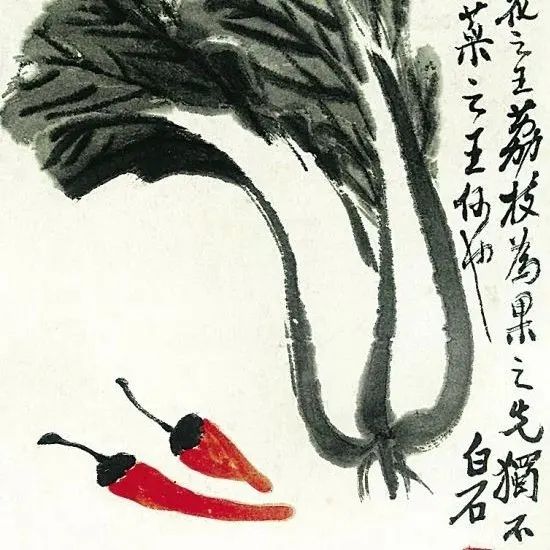 花之王荔枝為果之先獨不
菜之王何也
白石